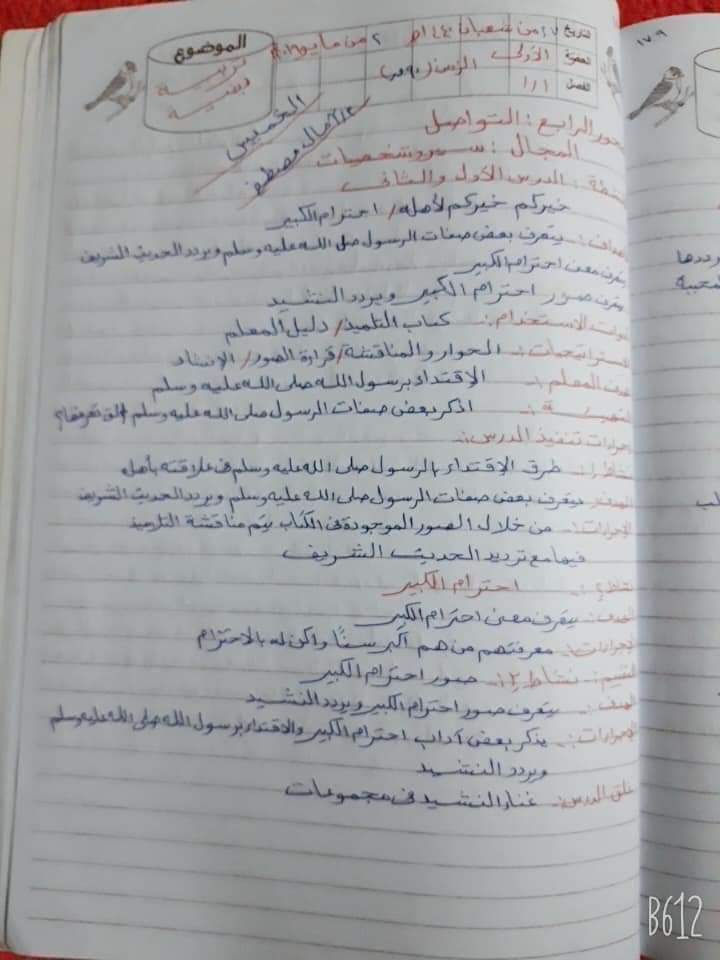 التاريخ ٢٧ من شعبان ١٤٤٠هـ ٢ من مايو ٢٠١٩
الحصة الأولى الزمن (٩٠ ق)
الفصل ١/١
الموضوع
تربية
دينية
الخميس
أ/ آمال مصطفى
المحور الرابع : التواصل
المجال : سير وشخصيات
خطة : الدرس الأول والثاني
خيركم خيركم لأهله / احترام الكبير
الأهداف : يتعرف بعض صفات الرسول صلى الله عليه وسلم ويردد الحديث الشريف
يتعرف معنى احترام الكبير
يتعرف صور احترام الكبير ويردد النشيد
أدوات الاستخدام : كتاب التلميذ / دليل المعلم
الاستراتيجيات : الحوار والمناقشة / قراءة الصور / الإنشاد
هدف المعلم : الإقتداء برسول الله صلى الله عليه وسلم
التهيئة : اذكر بعض صفات الرسول صلى الله عليه وسلم التي تعرفها؟
إجراءات تنفيذ الدرس :
نشاط ١ : طرق الإقتداء بالرسول صلى الله عليه وسلم في علاقته بأهله
الهدف : يتعرف بعض صفات الرسول صلى الله عليه وسلم ويردد الحديث الشريف
الإجراءات : من خلال الصور الموجودة في الكتاب يتم مناقشة التلاميذ
فيها مع ترديد الحديث الشريف
نشاط ٢ : احترام الكبير
الهدف : يتعرف معنى احترام الكبير
الإجراءات : معرفتهم من هم أكبر سناً وأكن له بالاحترام
التقييم : نشاط ٣ : صور احترام الكبير
الهدف : يتعرف صور احترام الكبير ويردد النشيد
الإجراءات : يذكر بعض آداب احترام الكبير والاقتداء برسول الله صلى الله عليه وسلم
ويردد النشيد
غلق الدرس : غناء النشيد في مجموعات
١٧٩
B612